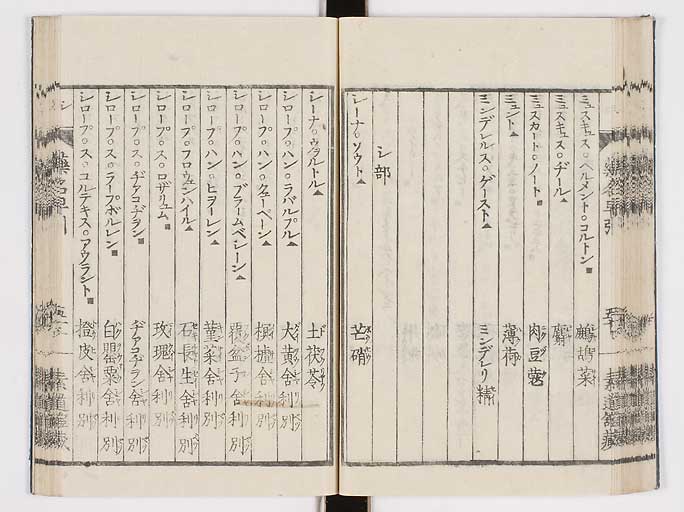 ミュスキュス○ヘルメント○コルトン 鷓鴣菜
ミュスキュス○ヂール 麝
ミュスカート○ノート 肉豆蔲
ミュント 薄荷
ミンデレルス○ゲースト ミンデレリ精
シ部
シーナ○ソウト 芒硝
シーナ○ウヲルトル 土茯苓
シロープ○ハン○ラバルブル 大黄舎利別
シロープ○ハン○クューペーン 榲桲舎利別
シロープ○ハン○ブラームベシーン 覆盆子舎利別
シロープ○ハン○ヒヨーレン 菫菜舎利別
シロープ○フロウェンハイル 石長生舎利別
シロープ○ス○ロザリュム 玫瑰舎利別
シロープ○ス○ヂアコヂヲン ヂアコヂヲン舎利別
シロープ○ス○ラープボルレン 白罌粟舎利別
シロープ○ス○コルテキス○アウラント 橙皮舎利別